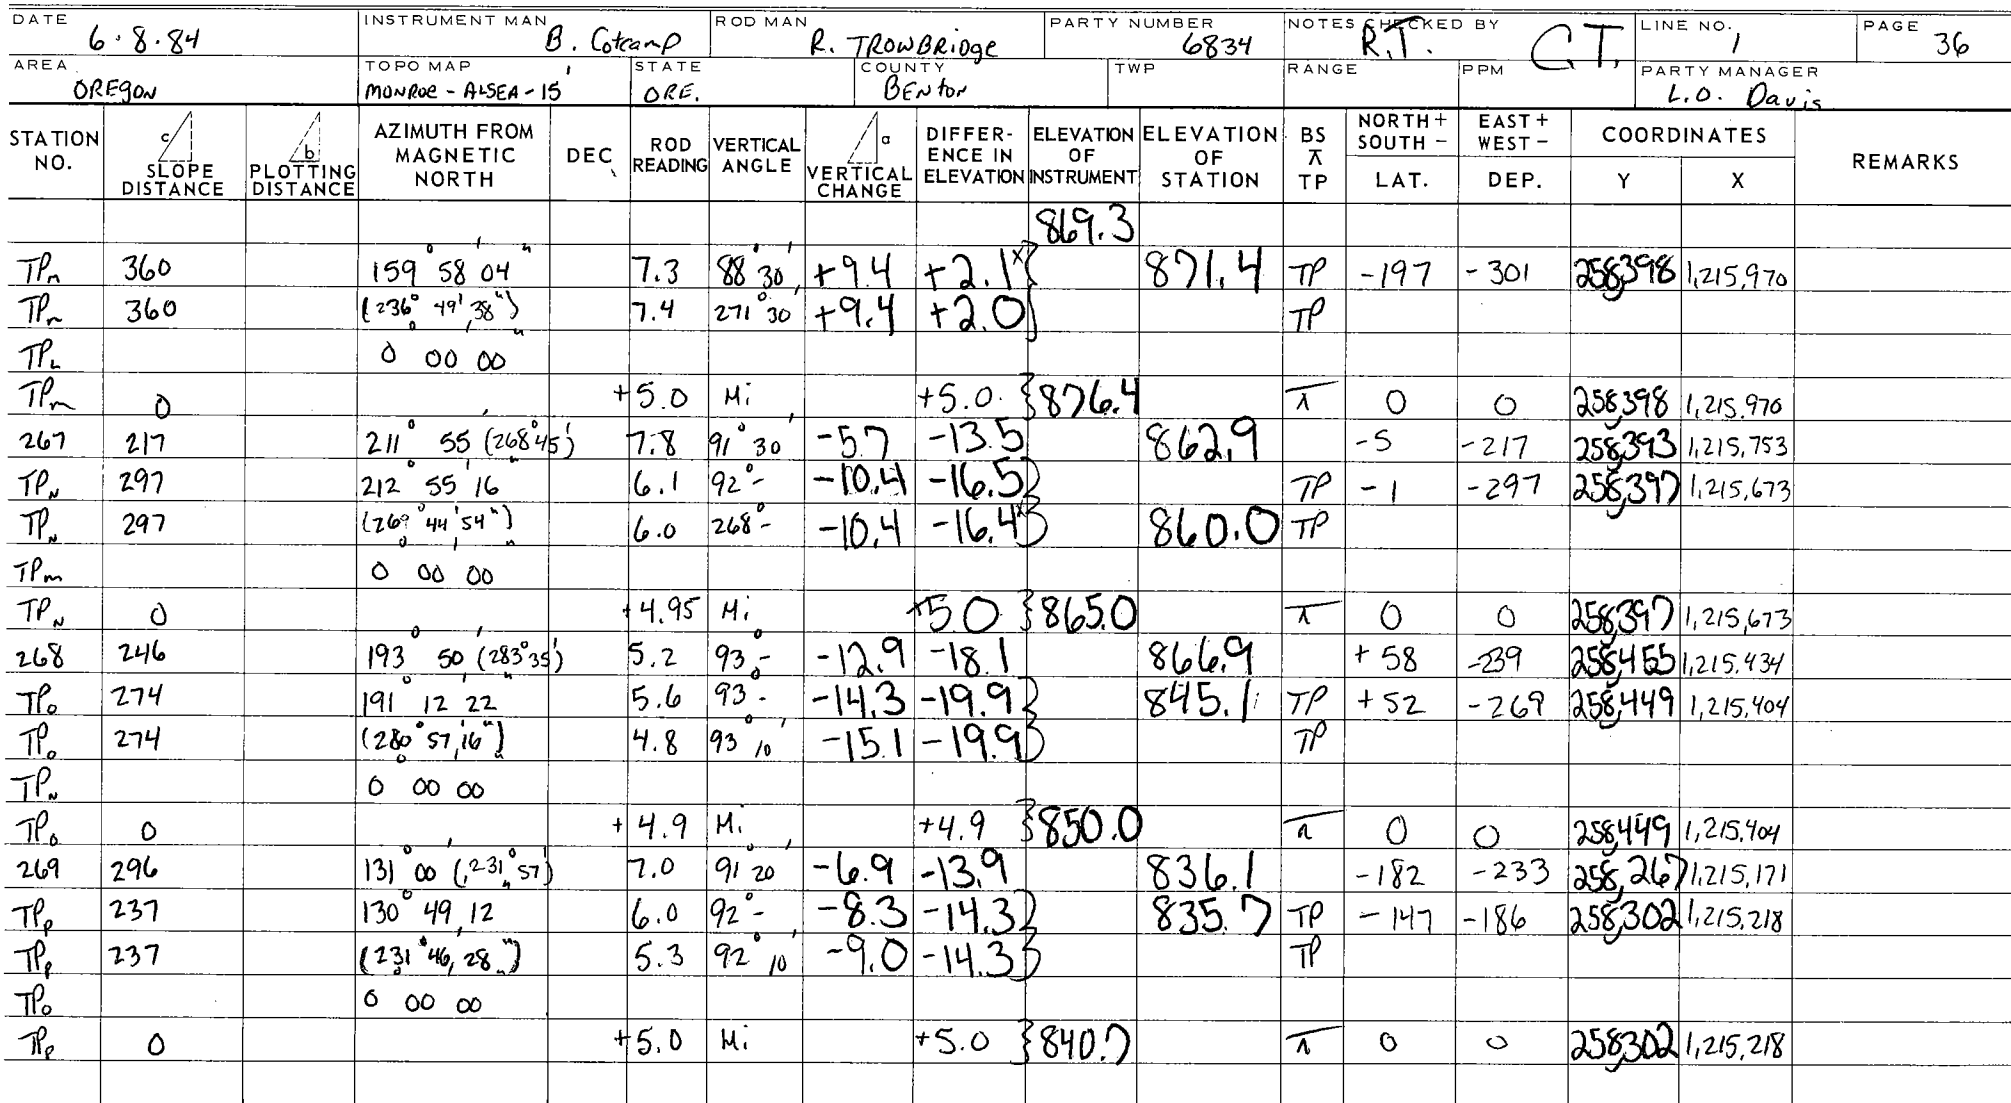 DATE 6·8·84 INSTRUMENT MAN B. Cotcamp ROD MAN R. TROWBRidge PARTY NUMBER 6834 NOTES CHECKED BY R.T. C.T. LINE NO. 1 PAGE 36
AREA OREgON TOPO MAP MONROE - ALSEA - 15' STATE ORE. COUNTY BENton TWP RANGE PPM PARTY MANAGER L.O. Davis
STATION NO. c SLOPE DISTANCE b PLOTTING DISTANCE AZIMUTH FROM MAGNETIC NORTH DEC. ROD READING VERTICAL ANGLE a VERTICAL CHANGE DIFFERENCE IN ELEVATION ELEVATION OF INSTRUMENT ELEVATION OF STATION BS ⊼ TP NORTH + SOUTH − LAT. EAST + WEST − DEP. COORDINATES Y X REMARKS
869.3
TPm 360 159° 58' 04" 7.3 88° 30' +9.4 +2.1x} 871.4 TP -197 -301 258,398 1,215,970
TPm 360 (236° 49' 38") 7.4 271° 30' +9.4 +2.0} TP
TPL 0° 00' 00"
TPm 0 +5.0 Mi +5.0 }876.4 ⊼ 0 0 258,398 1,215,970
267 217 211° 55' (268°45') 7.8 91° 30' -5.7 -13.5 862.9 -5 -217 258,393 1,215,753
TPN 297 212° 55' 16" 6.1 92° - -10.4 -16.5} TP -1 -297 258,397 1,215,673
TPN 297 (269° 44' 54") 6.0 268° - -10.4 -16.4x} 860.0 TP
TPm 0° 00' 00"
TPN 0 +4.95 Mi +5.0 }865.0 ⊼ 0 0 258,397 1,215,673
268 246 193° 50' (283°35') 5.2 93° - -12.9 -18.1 866.9 +58 -239 258,455 1,215,434
TPo 274 191° 12' 22" 5.6 93° - -14.3 -19.9} 845.1 TP +52 -269 258,449 1,215,404
TPo 274 (280° 57' 16") 4.8 93° 10' -15.1 -19.9} TP
TPN 0° 00' 00"
TPo 0 +4.9 Mi +4.9 }850.0 ⊼ 0 0 258,449 1,215,404
269 296 131° 00' (231° 57') 7.0 91° 20' -6.9 -13.9 836.1 -182 -233 258,267 1,215,171
TPp 237 130° 49' 12" 6.0 92° - -8.3 -14.3} 835.7 TP -147 -186 258,302 1,215,218
TPp 237 (231° 46' 28") 5.3 92° 10' -9.0 -14.3} TP
TPo 0° 00' 00"
TPp 0 +5.0 Mi +5.0 }840.7 ⊼ 0 0 258,302 1,215,218